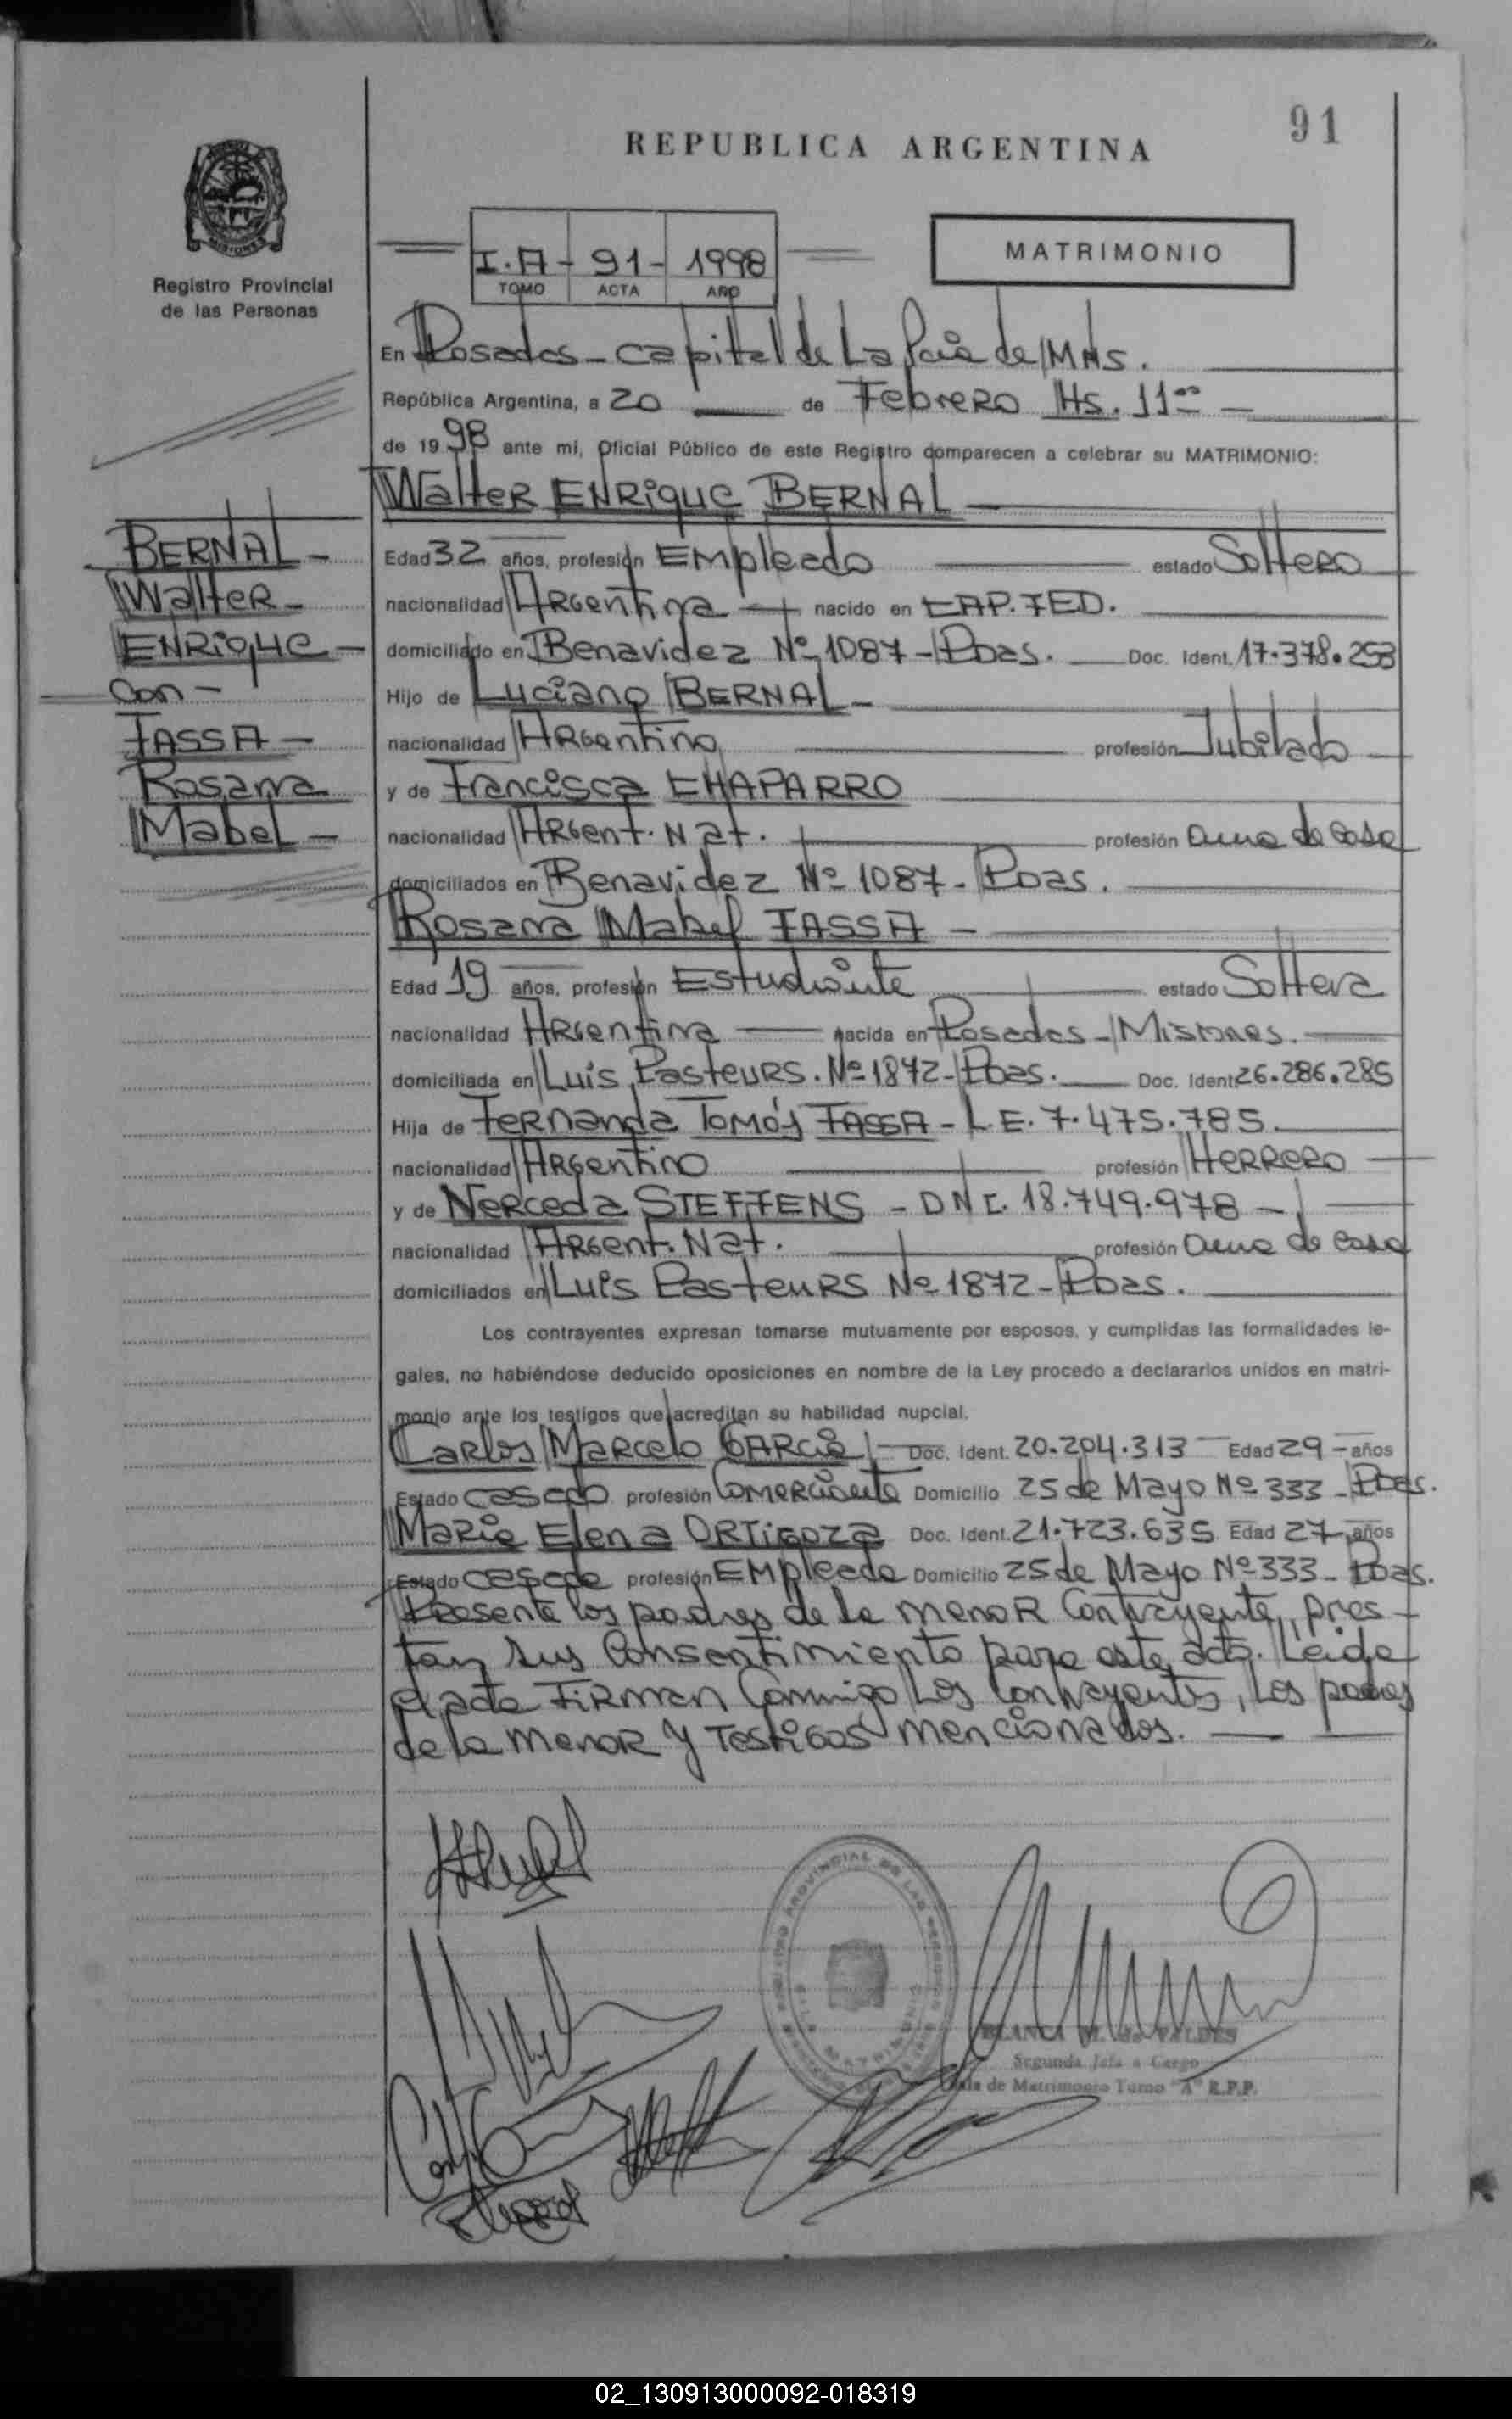 91
REPUBLICA ARGENTINA
MISIONES
Registro Provincial
de las Personas
I.A - 91 - 1998
TOMO ACTA AÑO
MATRIMONIO
En Posadas - Capital de La Pcia de Mnes.
República Argentina, a 20 de Febrero Hs. 11
de 1998 ante mi, Oficial Público de este Registro comparecen a celebrar su MATRIMONIO:
Walter ENRique BERNAL -
BERNAL -
Walter -
ENRique -
Con -
FASSA -
Rosana
Mabel -
Edad 32 años, profesión Empleado estado Soltero
nacionalidad Argentina nacido en CAP. FED.
domiciliado en Benavidez Nº 1087 - Pdas. Doc. Ident. 17.378.253
Hijo de Luciano BERNAL -
nacionalidad Argentino profesión Jubilado
y de Francisca CHAPARRO
nacionalidad Argent. Nat. profesión Ama de Casa
domiciliados en Benavidez Nº 1087 - Pdas.
Rosana Mabel FASSA -
Edad 19 años, profesión Estudiante estado Soltera
nacionalidad Argentina nacida en Posadas - Misiones.
domiciliada en Luis Pasteurs. Nº 1872 - Pdas. Doc. Ident. 26.286.285
Hija de Fernando Tomás FASSA - L.E. 7.475.785.
nacionalidad Argentino profesión Herrero
y de Nerceda STEFFENS - DNI. 18.749.978 -
nacionalidad Argent. Nat. profesión Ama de Casa
domiciliados en Luis Pasteurs Nº 1872 - Pdas.
Los contrayentes expresan tomarse mutuamente por esposos, y cumplidas las formalidades le-
gales, no habiéndose deducido oposiciones en nombre de la Ley procedo a declararlos unidos en matri-
monio ante los testigos que acreditan su habilidad nupcial.
Carlos Marcelo GARCia - Doc. Ident. 20.204.313 Edad 29 - años
Estado casado profesión Comerciante Domicilio 25 de Mayo Nº 333 - Pdas.
Maria Elena ORTIGOZA Doc. Ident. 21.723.635 Edad 27 años
Estado casada profesión Empleada Domicilio 25 de Mayo Nº 333 - Pdas.
Presente los padres de la menor Contrayente, pres-
tan sus Consentimiento para este acto. Leida
el acta Firman Conmigo Los Contrayentes, Los padres
de la menor y Testigos mencionados.
BLANCA M. de VALDES
Segunda Jefa a Cargo
Sala de Matrimonio Turno "A" R.P.P.
02_130913000092-018319